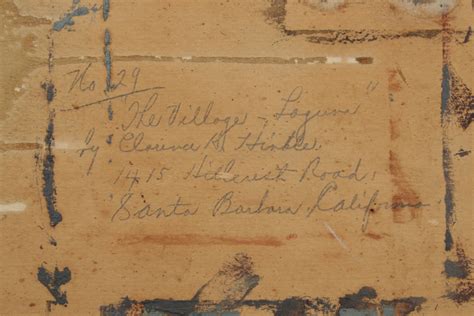 No 29
The Village, Laguna"
by Clarence K. Hinkle
1415 Hillcrest Road,
Santa Barbara, California